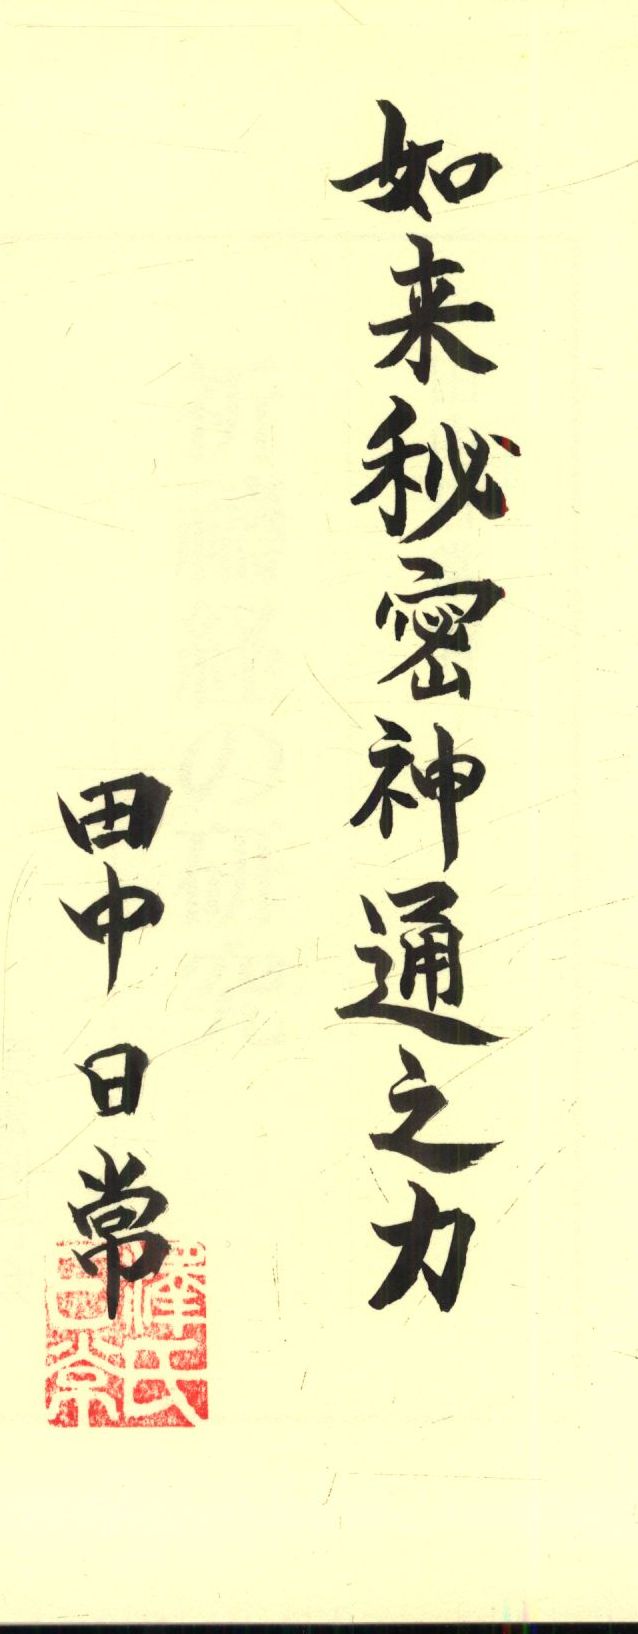 如来秘密神通之力
田中日常